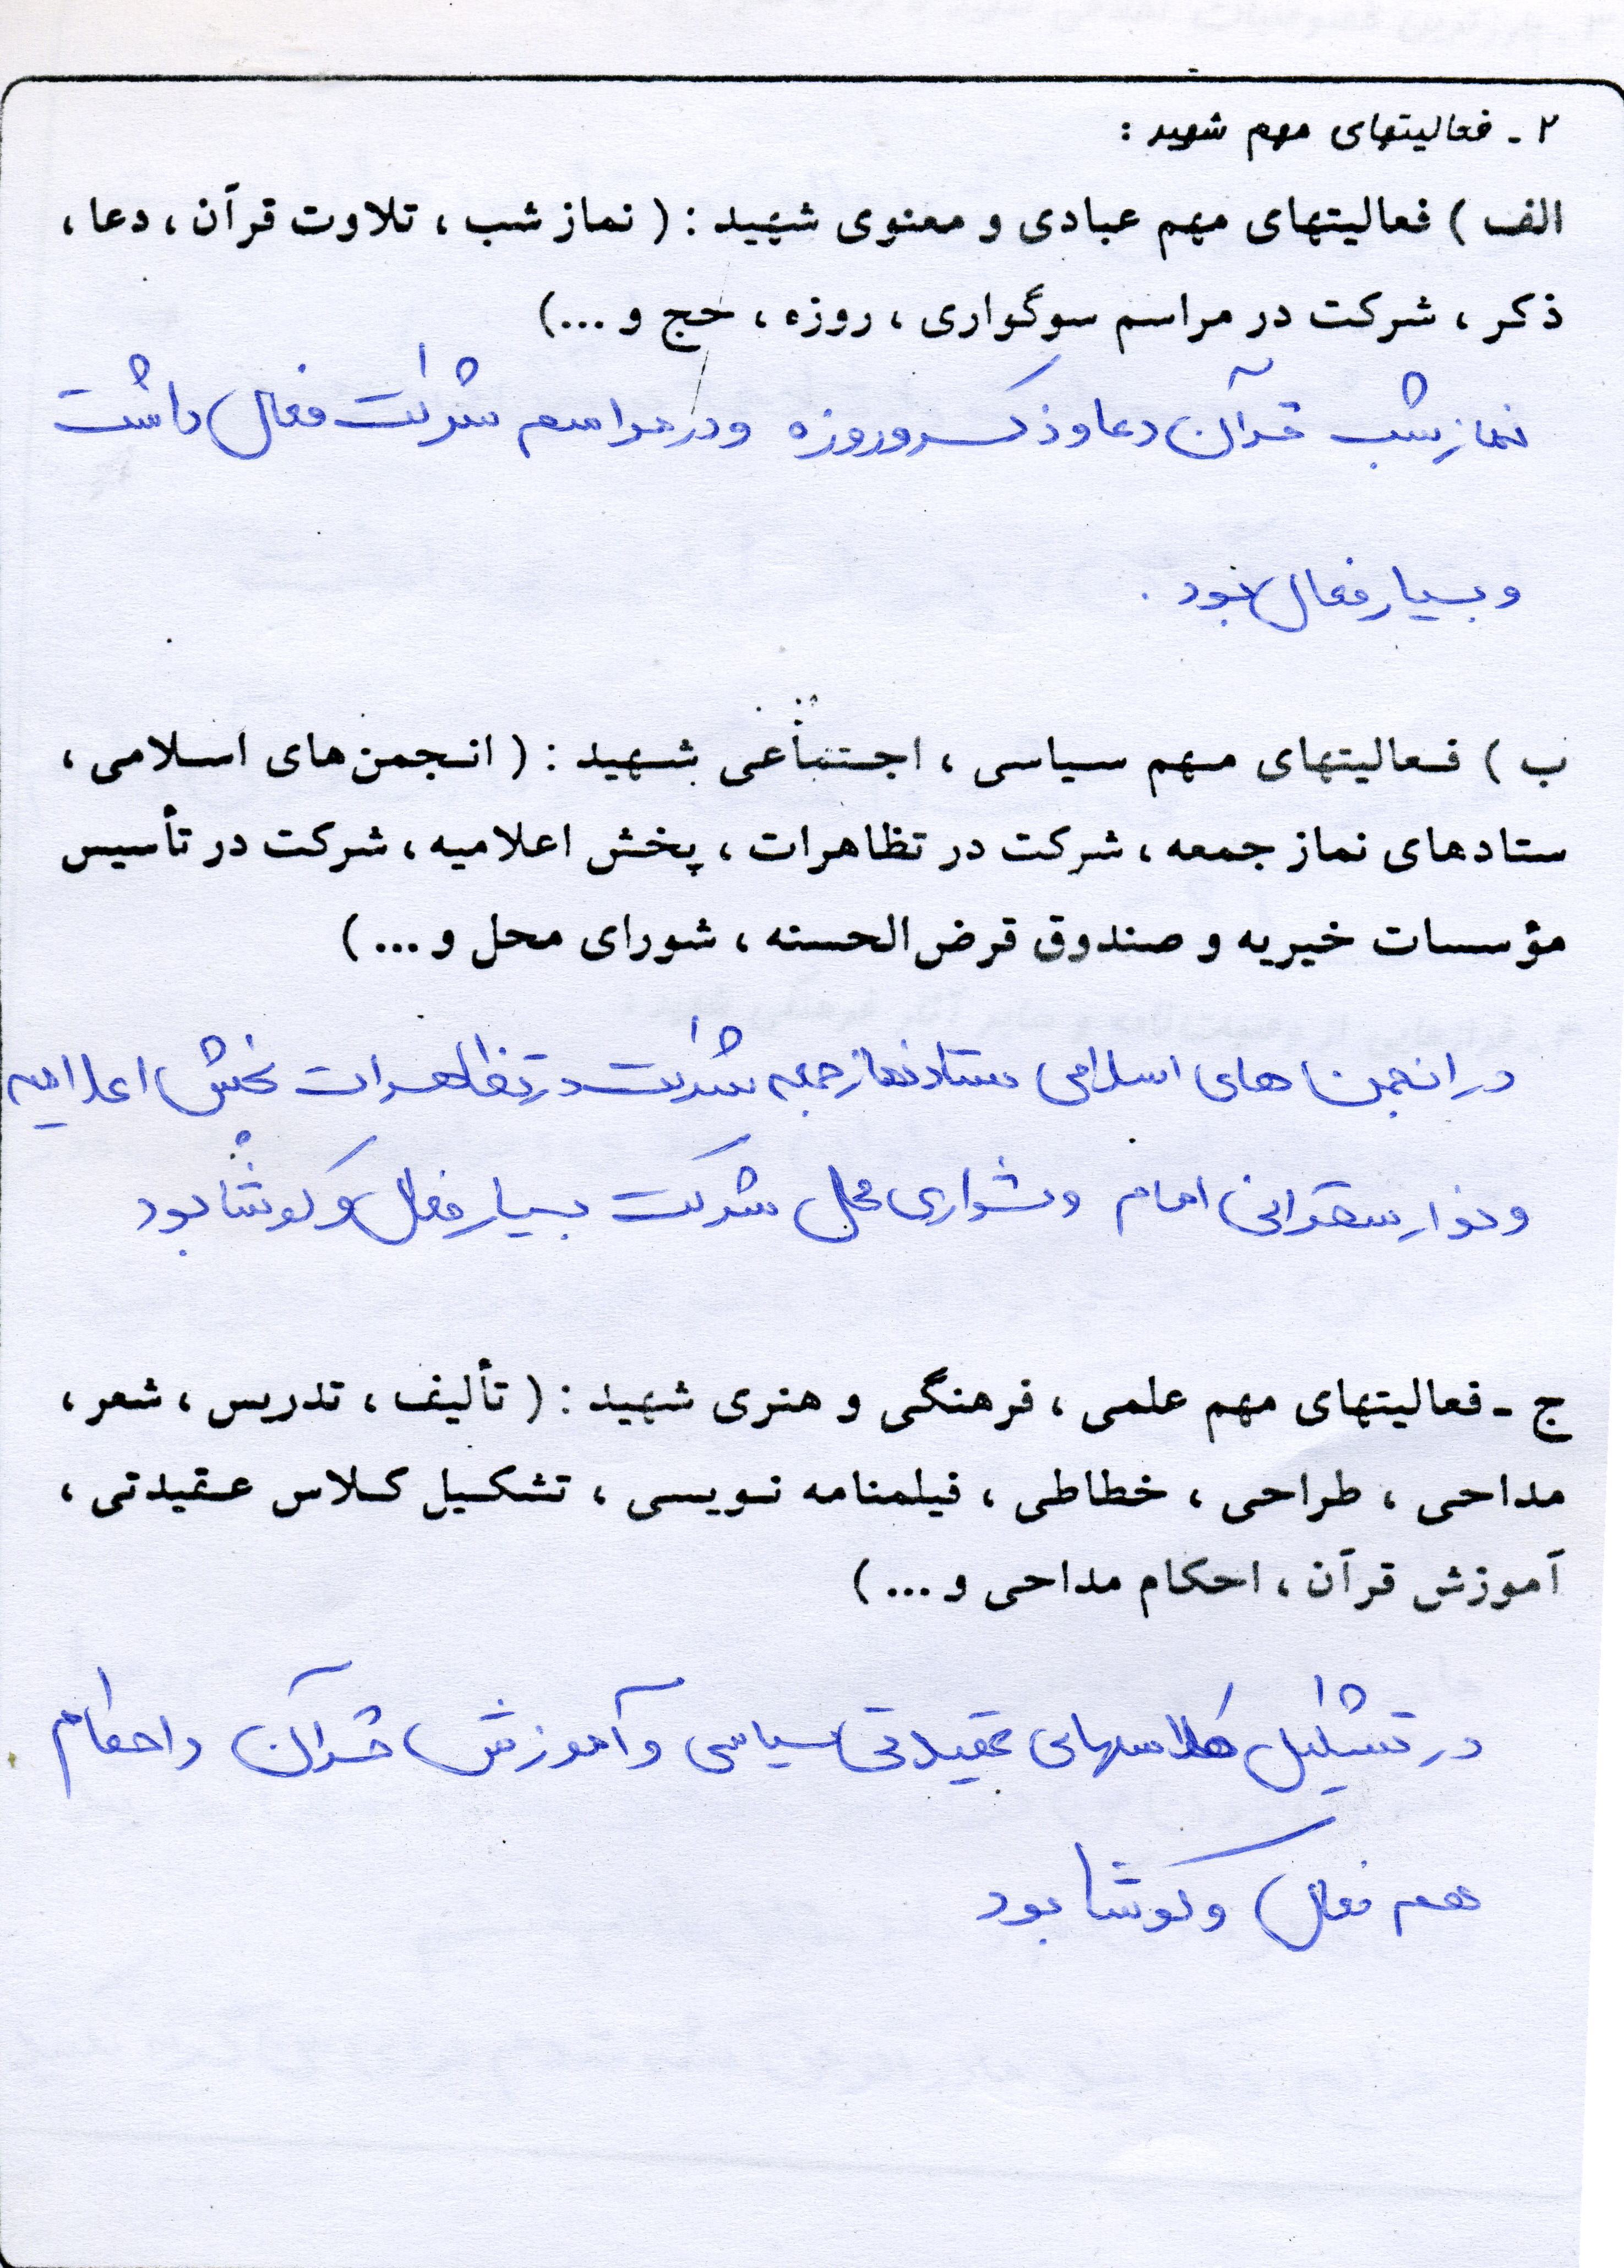 ۲ - فعالیتهای مهم شهید :
الف ) فعالیتهای مهم عبادی و معنوی شهید : ( نماز شب ، تلاوت قرآن ، دعا ،
ذکر ، شرکت در مراسم سوگواری ، روزه ، حج و ...)
نماز شب قرآن دعا و ذکر و روزه و در مراسم شرکت فعال داشت
و بسیار فعال بود .
ب ) فعالیتهای مهم سیاسی ، اجتماعی شهید : ( انجمن‌های اسلامی ،
ستادهای نماز جمعه ، شرکت در تظاهرات ، پخش اعلامیه ، شرکت در تأسیس
مؤسسات خیریه و صندوق قرض‌الحسنه ، شورای محل و ... )
در انجمن های اسلامی ستاد نماز جمعه شرکت در تظاهرات پخش اعلامیه
و نوار سخنرانی امام و شورای محل شرکت بسیار فعال و کوشا بود
ج - فعالیتهای مهم علمی ، فرهنگی و هنری شهید : ( تألیف ، تدریس ، شعر ،
مداحی ، طراحی ، خطاطی ، فیلمنامه نویسی ، تشکیل کلاس عقیدتی ،
آموزش قرآن ، احکام مداحی و ... )
در تشکیل کلاسهای عقیدتی سیاسی و آموزش قرآن و احکام
هم فعال و کوشا بود